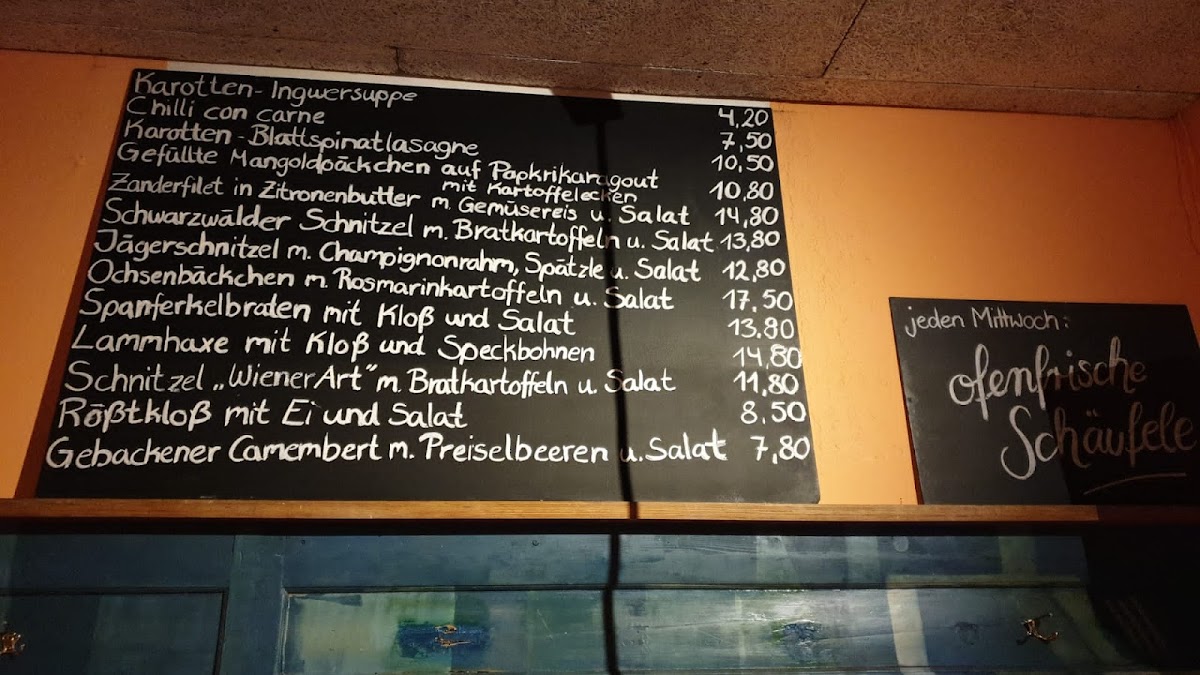 Karotten-Ingwersuppe 4,20
Chilli con carne 7,50
Karotten-Blattspinatlasagne 10,50
Gefüllte Mangoldpäckchen auf Papkrikaragout
mit Kartoffelecken 10,80
Zanderfilet in Zitronenbutter m. Gemüsereis u. Salat 14,80
Schwarzwälder Schnitzel m. Bratkartoffeln u. Salat 13,80
Jägerschnitzel m. Champignonrahm, Spätzle u. Salat 12,80
Ochsenbäckchen m. Rosmarinkartoffeln u. Salat 17,50
Spanferkelbraten mit Kloß und Salat 13,80
Lammhaxe mit Kloß und Speckbohnen 14,80
Schnitzel „Wiener Art" m. Bratkartoffeln u. Salat 11,80
Rößtkloß mit Ei und Salat 8,50
Gebackener Camembert m. Preiselbeeren u. Salat 7,80
jeden Mittwoch:
ofenfrische
Schäufele